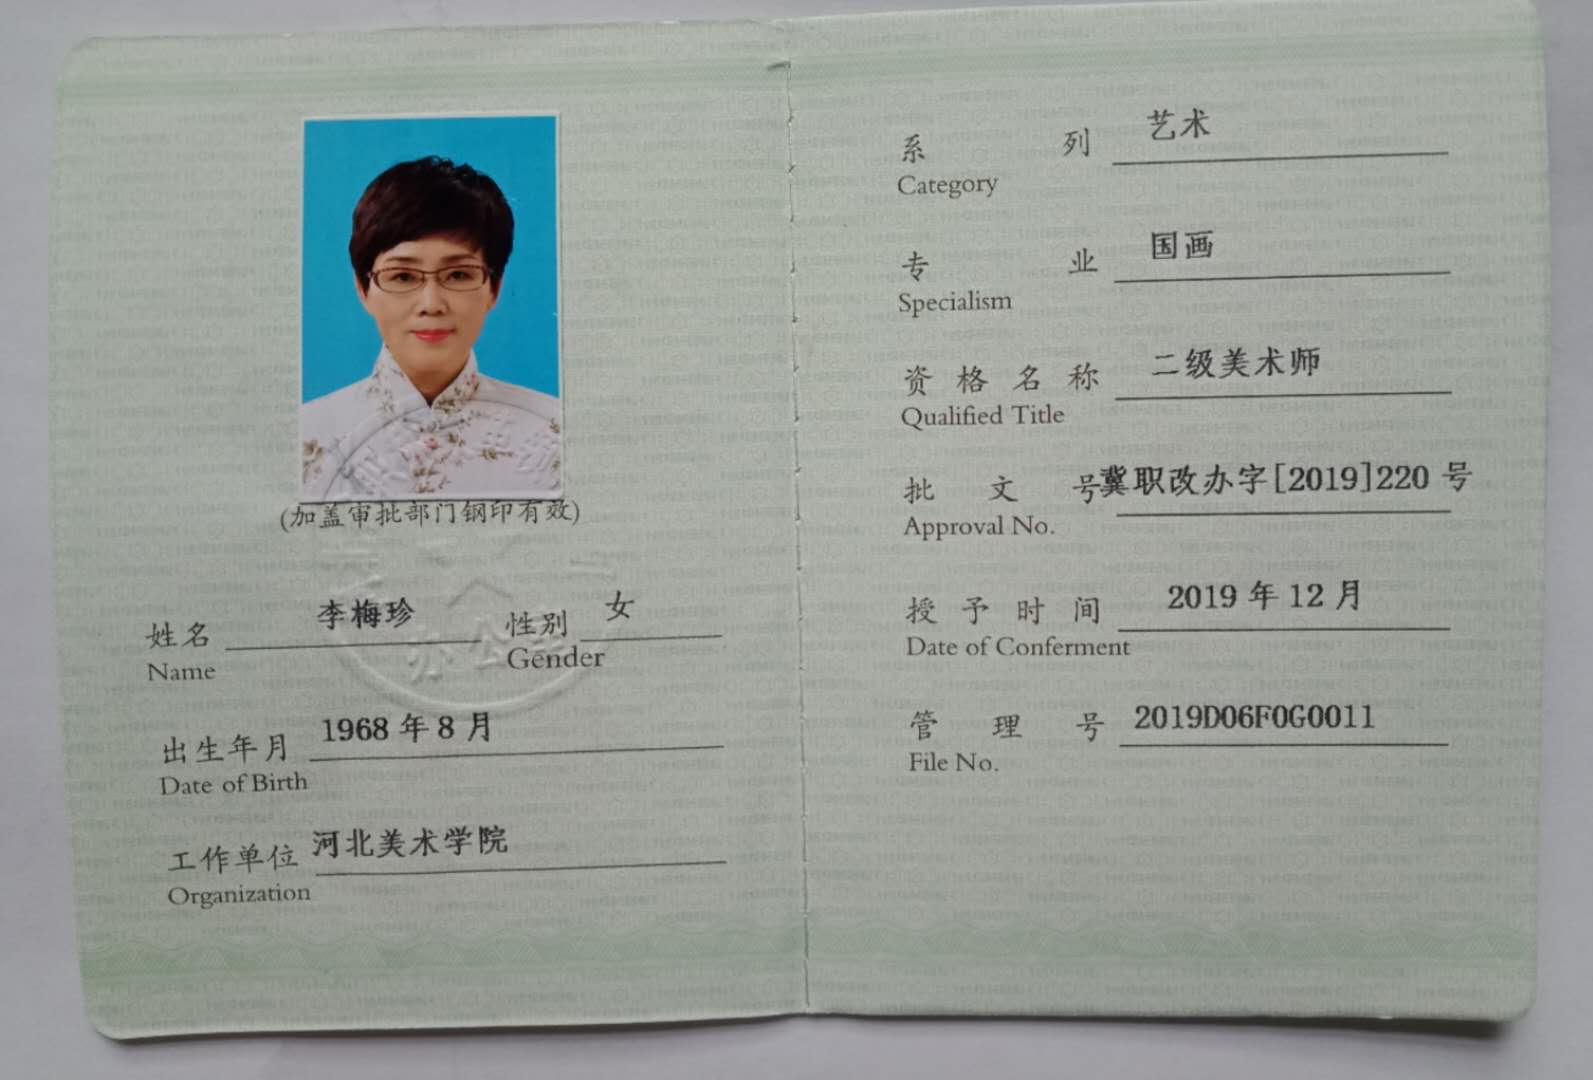 (加盖审批部门钢印有效)
办公室
姓名 李梅珍 性别 女
Name Gender
出生年月 1968年8月
Date of Birth
工作单位 河北美术学院
Organization
系列 艺术
Category
专业 国画
Specialism
资格名称 二级美术师
Qualified Title
批文号 冀职改办字[2019]220号
Approval No.
授予时间 2019年12月
Date of Conferment
管理号 2019D06F0G0011
File No.